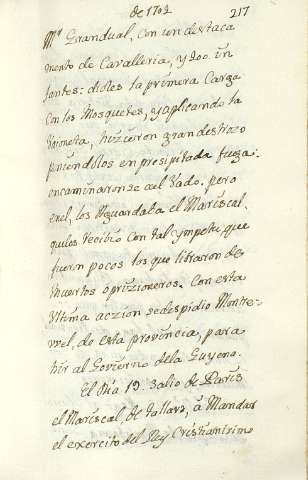 de 1702
217
Mr. Grandual, Con un destaca
mento de Cavalleria, y 200. in
fantes: dioles la primera Carga
Con los Mosquetes, y aplicando la
Vaioneta, hizieron gran destrozo
poniendolos en presipitada fuga:
encaminaronse ael Vado. pero
enel, los Aguardaba el Mariscal,
quelos Recibio Con tal ympetu, que
fueron pocos los que libraron de
muertos o prizioneros. Con esta
Ultima aczion sedespidio Montre-
vel, de esta provincia, para
hir al Govierno dela Guyena.
El Dia 19. salio de Paris
el Mariscal, de tallars, à Mandar
el exercito del Rey Cristianisimo